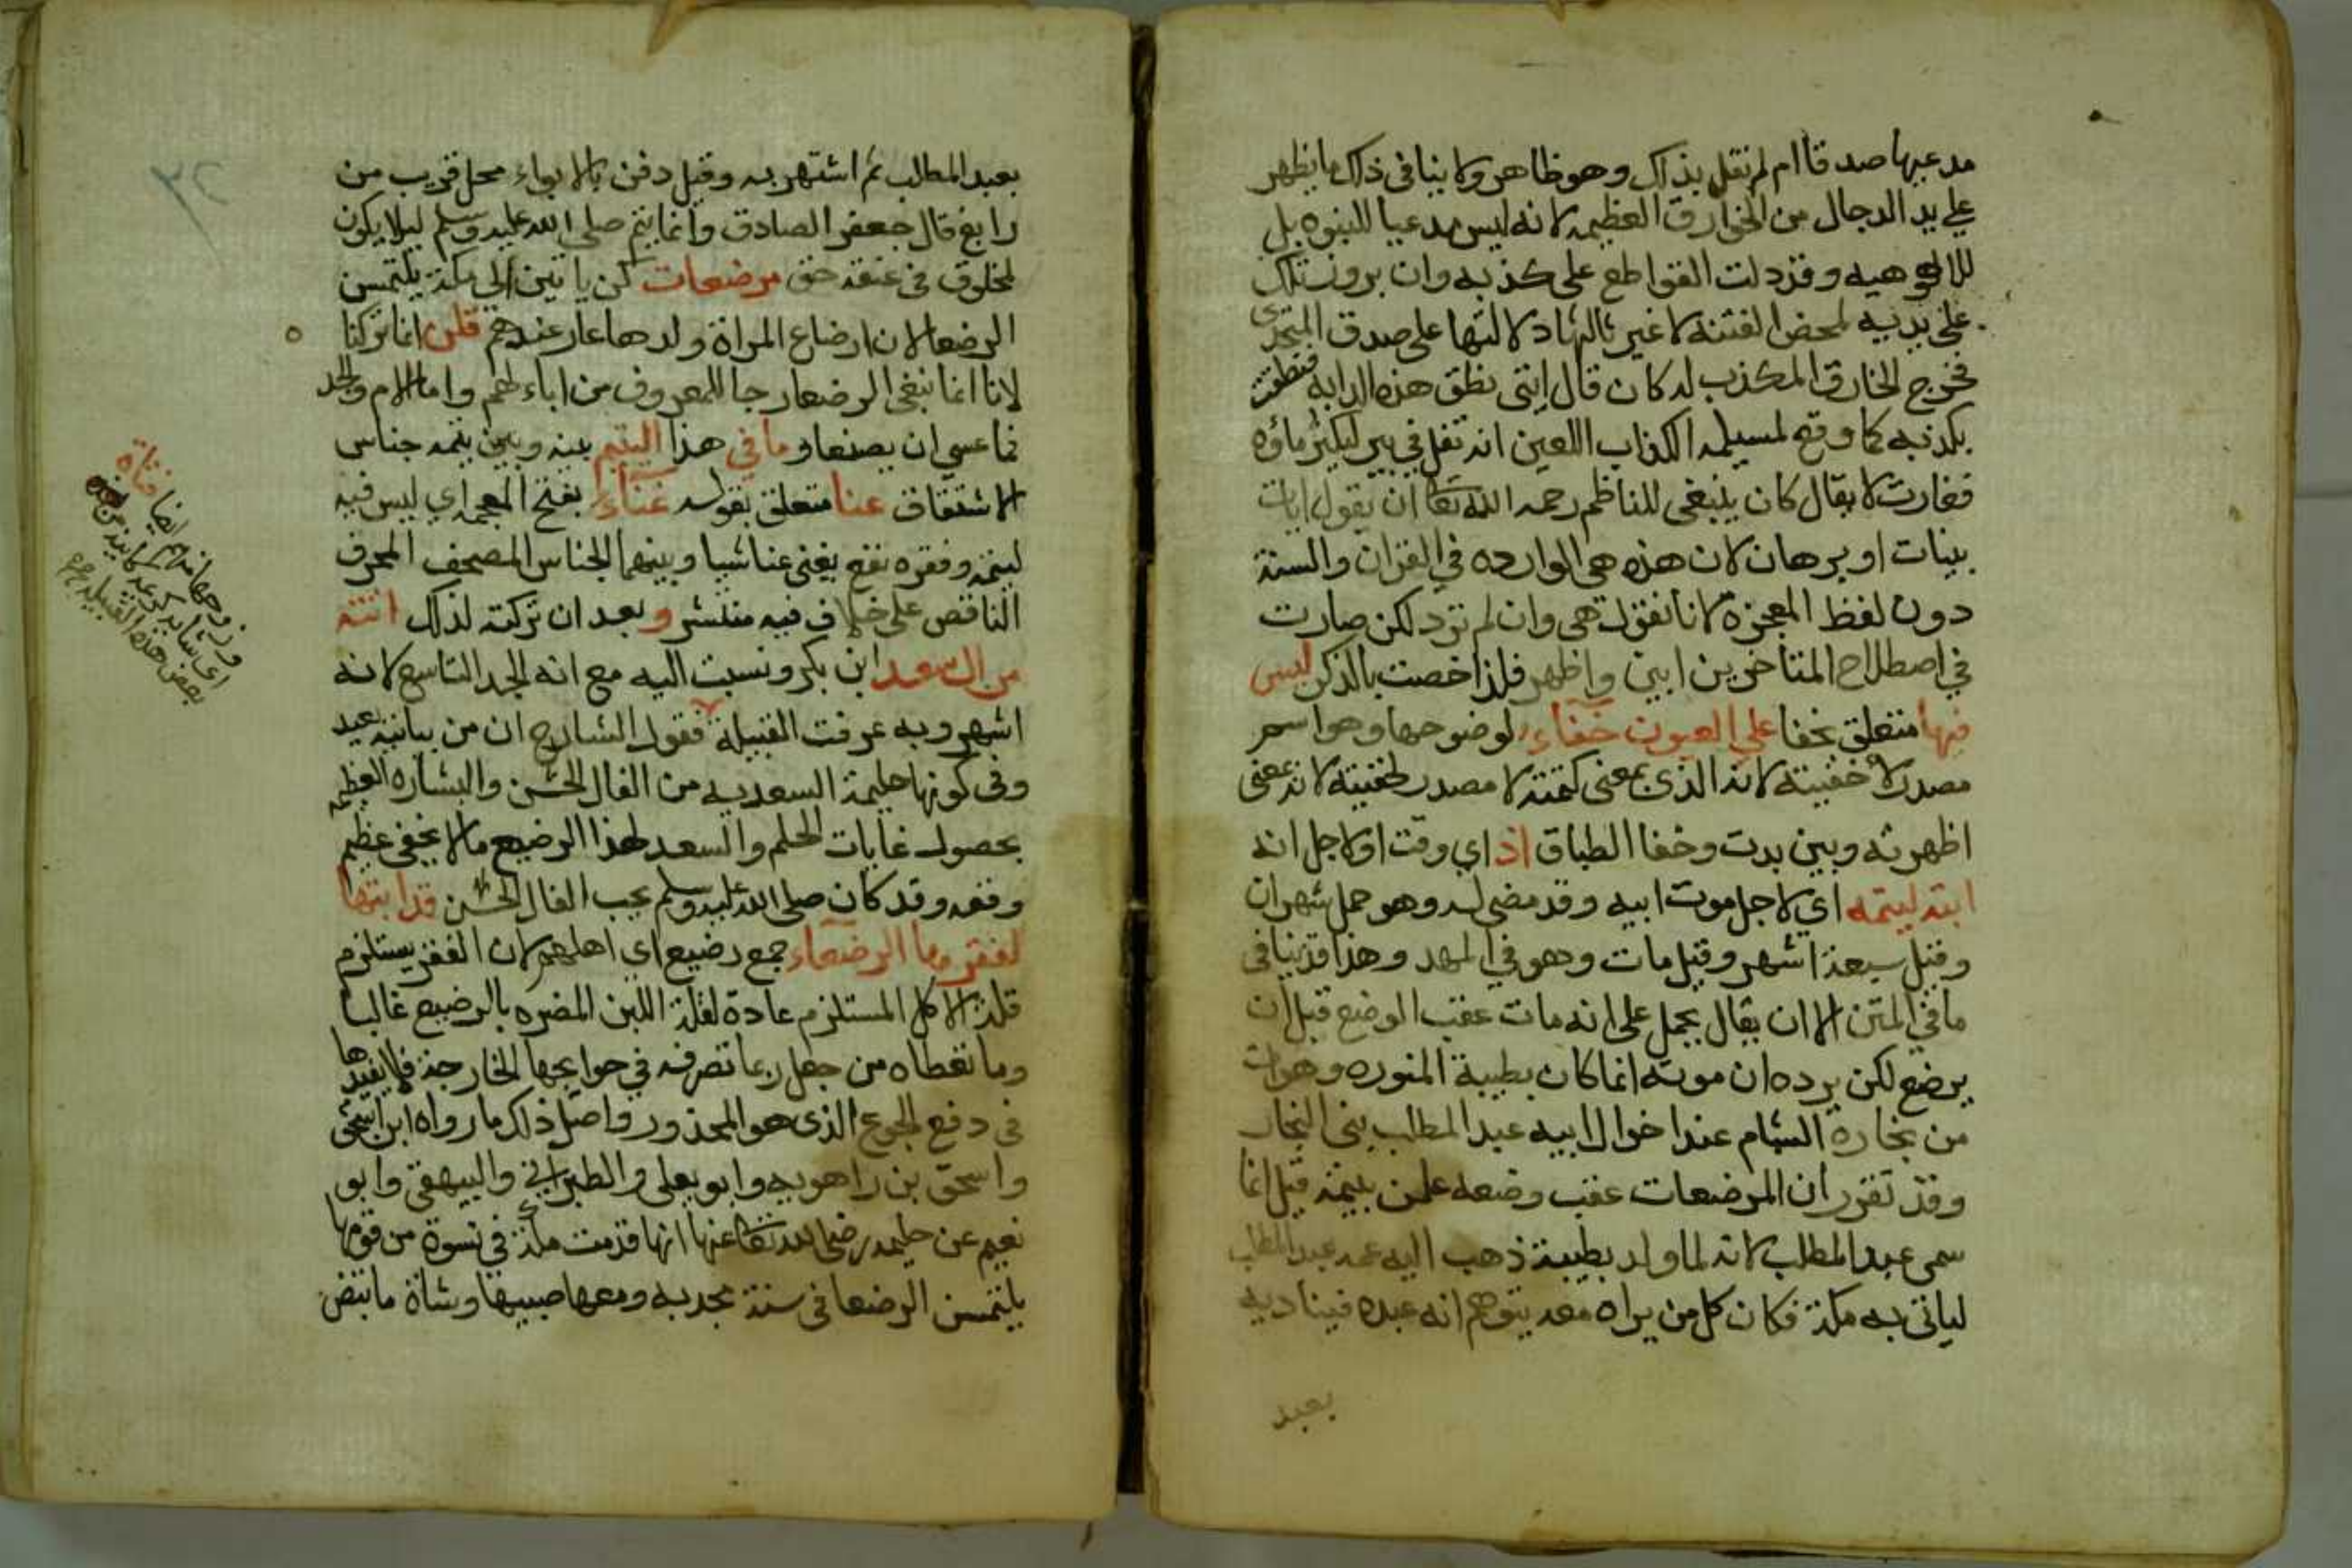 مدعيها صدقا ام لم نقل بذاك وهو ظاهر ولا ينافى ذاك ما يظهر
على يد الدجال من الخوارق العظيمه لانه ليس مدعيا للنبوه بل
للالوهيه وقد دلت القواطع على كذبه وان بروز تلك
على يديه لمحض الفتنه لا غير ثالثها دلالتها على صدق المتحدى
فخرج الخارق المكذب له كان قال ايتى نطق هذه الدابه فنطقت
بكذبه كما وقع لمسيلمه الكذاب اللعين انه تفل في بير ليكثر ماؤه
فغارت لا يقال كان ينبغى للناظم رحمه الله تعا ان يقول ايات
بينات او برهان لان هذه هى الوارده في القران والسنة
دون لفظ المعجزة لانا نقول هى وان لم ترد لكن صارت
في اصطلاح المتاخرين ابين واظهر فلذا خصت بالذكر ليس
فيها متعلق بخفا على العيون خفاء لوضوحها وهو اسم
مصدر لاخفيته لانه الذى بمعنى كتمته لا مصدر لخفيته لانه بمعنى
اظهرته وبين بدت وخفا الطباق اذ اي وقت او لاجل انه
ابته ليتمه اي لاجل موت ابيه وقد مضى له وهو حمل شهران
وقيل سبعة اشهر وقيل مات وهو في المهد وهذا قد ينافى
ما في المتن الا ان يقال يحمل على انه مات عقب الوضع قبل ان
يرضع لكن يرده ان موته انما كان بطيبة المنوره وهو ات
من تجارة الشام عند اخوال ابيه عبد المطلب بنى النجار
وقد تقرر ان المرضعات عقب وضعه علمن بيتمه قيل انما
سمى عبد المطلب لانه لما ولد بطيبة ذهب اليه عمه عبد المطلب
لياتى به مكة فكان كل من يراه معه يتوهم انه عبده فيناديه
بعبد
بعبد المطالب ثم اشتهر به وقيل دفن بالابواء محل قريب من
رابغ قال جعفر الصادق وانما يتم صلى الله عليه وسلم ليلا يكون
لمخلوق فى عنقه حق مرضعات كن ياتين الى مكة يلتمسن
الرضعا لان ارضاع المراة ولدها عار عندهم قلن انما تركنا
لانا انما نبغى الرضعا رجا للمعروف من اباءهم واما الام والجد
فما عسى ان يصنعا وما في هذا اليتيم بينه وبين يتمه جناس
الاشتقاق عنا متعلق بقوله غناء بفتح المعجمه اي ليس فيه
ليتمه وفقره نفع يغنى عنا شيا وبينهما الجناس المصحف المحرف
الناقص على خلاف فيه منتشر و بعد ان تركته لذلك اتته
من ال سعد ابن بكر ونسبت اليه مع انه الجد التاسع لانه
اشهر وبه عرفت القبيلة فقول الشارح ان من بيانيه بعيد
وفى كونها حليمة السعديه من الفال الحسن والبشاره العظيمه
بحصول غايات الحلم والسعد لهذا الرضيع ما لا يخفى عظيم
وقعه وقد كان صلى الله عليه وسلم يحب الفال الحسن قد ابتها
لفقرها الرضعاء جمع رضيع اى اهلهم لان الفقر يستلزم
قلة الاكل المستلزم عادة لقلة اللبن المضره بالرضيع غالبا
وما تعطاه من جعل ربما تصرفه في حوايجها الخارجة فلا يفيدها
فى دفع الجوع الذى هو المحذور واصل ذلك ما رواه ابن اسحق
واسحق بن راهويه وابو يعلى والطبراني والبيهقي وابو
نعيم عن حليمه رضى الله تعا عنها انها قدمت مكة في نسوة من قومها
يلتمسن الرضعا فى سنة مجدبه ومعها صبيها وشاة ما تبض
ايضا فتاة